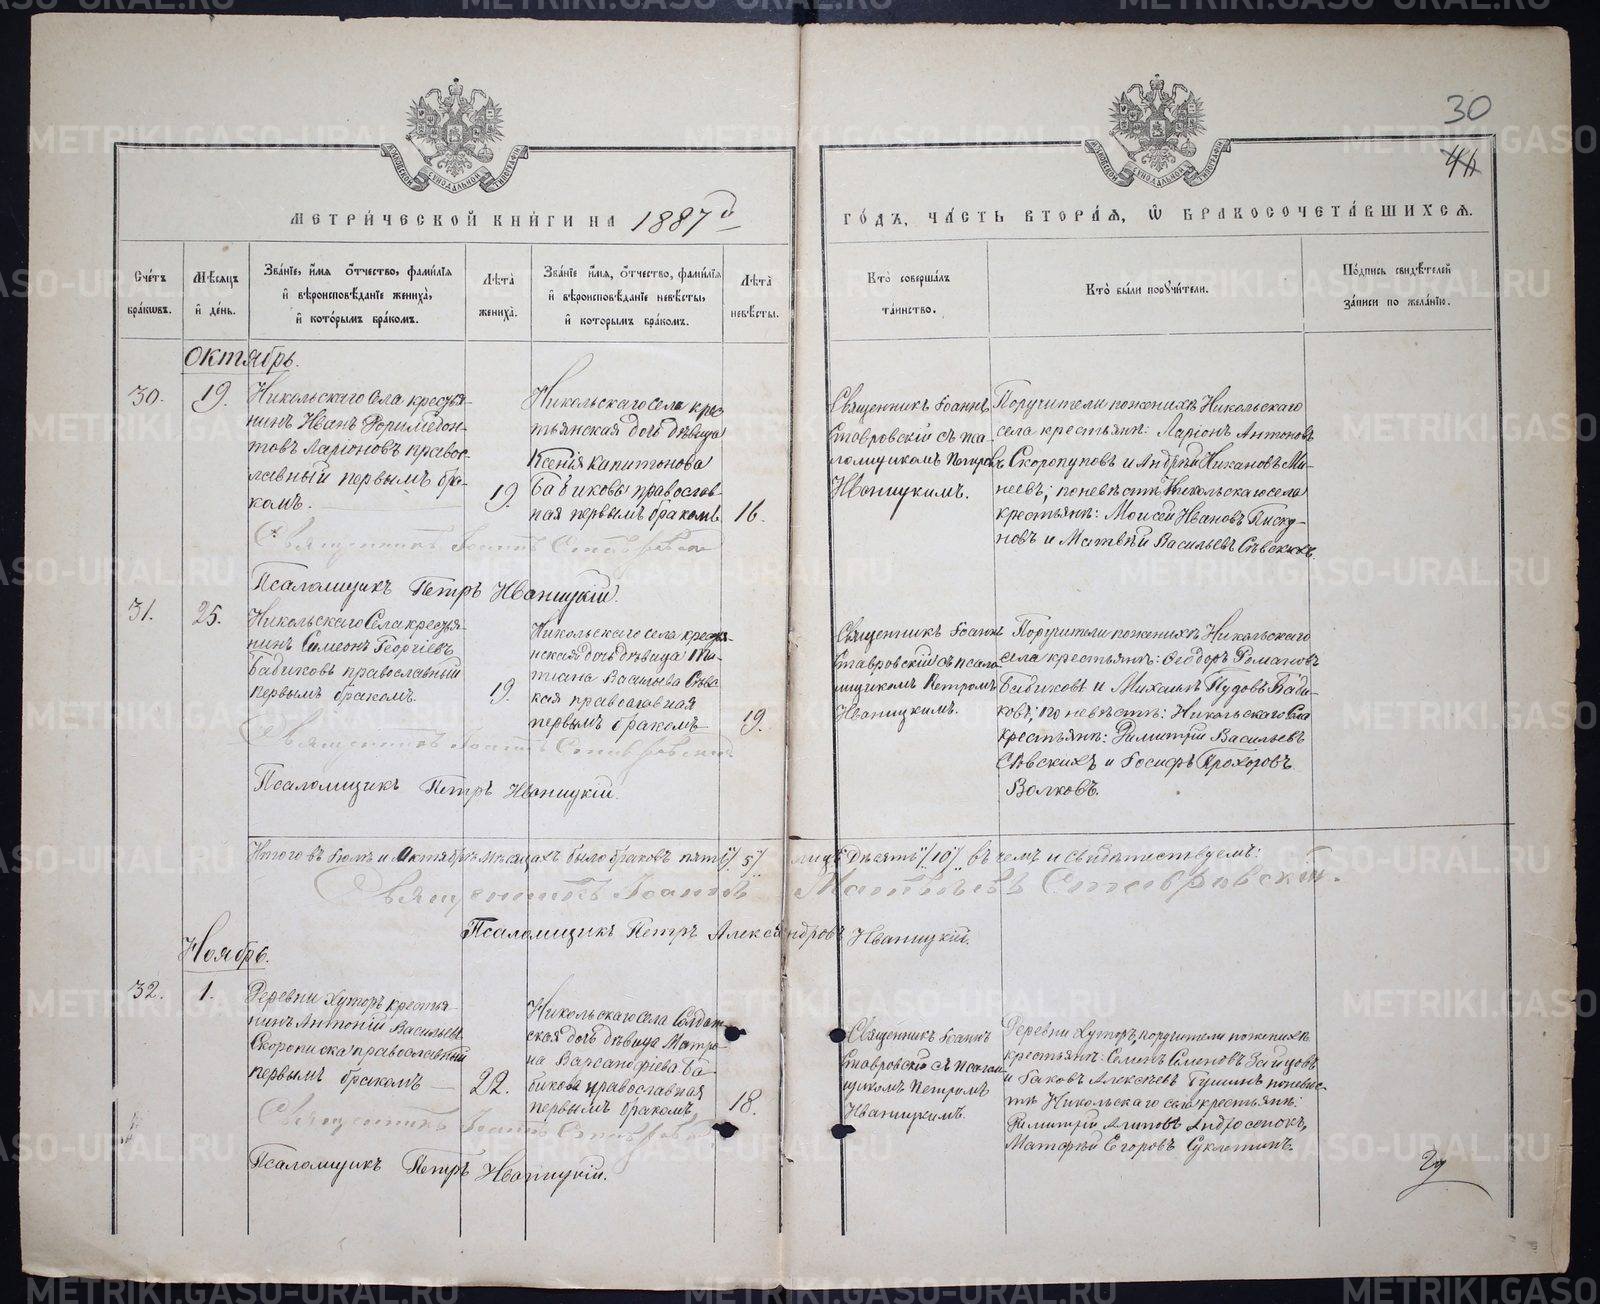 30
44
МОСКОВСКОЙ СУНОДАЛЬНОЙ ТИПОГРАФІИ
МОСКОВСКОЙ СУНОДАЛЬНОЙ ТИПОГРАФІИ
МЕТРИ́ЧЕСКОЙ КНИ́ГИ НА 1887 й
ГО́ДЪ, ЧА́СТЬ ВТОРА́Я, Ѽ БРАКОСОЧЕТА́ВШИХСЯ.
Сче́тъ бра́кωвъ.
Мѣ́сяцъ и҆ де́нь.
Зва́нїе, и҆́мя ѻ҆́тчество, фами́лїя и҆ вѣроисповѣ́данїе жениха̀, и҆ кото́рымъ бра́комъ.
Лѣ́та̀ жениха̀.
Зва́нїе и҆́мя, ѻ҆́тчество, фами́лїя и҆ вѣроисповѣ́данїе невѣ́сты, и҆ которымъ бра́комъ.
Лѣ́та̀ невѣ́сты.
Кто̀ соверша́лъ та́инство.
Кто̀ бы́ли порꙋчи́тели.
По́дпись свидѣ́телей за́писи по жела́нїю.
Октябрь.
30.
19.
Никольскаго Села крестья-
нинъ Иванъ Форимедон-
товъ Ларіоновъ правос-
лавный первымъ бра-
комъ.
19.
Никольскаго села крес-
тьянская дочь дѣвица
Ксенія Капитонова
Бабикова православ-
ная первымъ бракомъ
16.
Священникъ Іоаннъ
Ставровскій съ пса-
ломщикомъ Петромъ
Иваницкимъ.
Поручители по женихѣ Никольскаго
села крестьяне: Ларіонъ Антоновъ
Скоропуповъ и Андрей Никановъ Ми-
неевъ; по невѣстѣ Никольскаго села
крестьяне: Моисей Ивановъ Писку-
новъ и Матвѣй Васильевъ Сѣвскихъ.
Священникъ Іоаннъ Ставровскій
Псаломщикъ Петръ Иваницкій.
31.
25.
Никольскаго Села крестья-
нинъ Симеонъ Георгіевъ
Бабиковъ православный
первымъ бракомъ.
19.
Никольскаго села крестья-
нская дочь дѣвица Та-
тіана Васильева Сѣвс-
кая православная
первымъ бракомъ
19.
Священникъ Іоаннъ
Ставровскій съ псало-
мщикомъ Петромъ
Иваницкимъ.
Поручители по женихѣ Никольскаго
села крестьяне: Ѳеодоръ Романовъ
Бабиковъ и Михаилъ Пудовъ Баби-
ковъ; по невѣстѣ: Никольскаго Села
крестьяне: Димитрій Васильевъ
Сѣвскихъ и Іосифъ Прохоровъ
Волковъ.
Священникъ Іоаннъ Ставровскій.
Псаломщикъ Петръ Иваницкій.
Итого въ Іюлѣ и Октябрѣ мѣсяцахъ было браковъ пять /5/ лицъ Десять /10/ въ чемъ и свидѣтельствуемъ:
Священникъ Іоаннъ Матвѣевъ Ставровскій.
Псаломщикъ Петръ Александровъ Иваницкій.
Ноябрь.
32.
1.
Деревни Хуторъ крестья-
нинъ Антоній Васильевъ
Скорописка православный
первымъ бракомъ
22.
Никольскаго села Солдат-
ская дочь дѣвица Матро-
на Варсанофіева Ба-
бикова православная
первымъ бракомъ
18.
Священникъ Іоаннъ
Ставровскій съ псалом-
щикомъ Петромъ
Иваницкимъ.
Деревни Хуторъ, поручители по женихѣ
крестьяне: Семенъ Семеновъ
и Іаковъ Алексѣевъ по невѣс-
тѣ Никольскаго села крестьяне:
Димитрій
Матѳей Егоровъ
Священникъ Іоаннъ Ставровскій
Псаломщикъ Петръ Иваницкій.